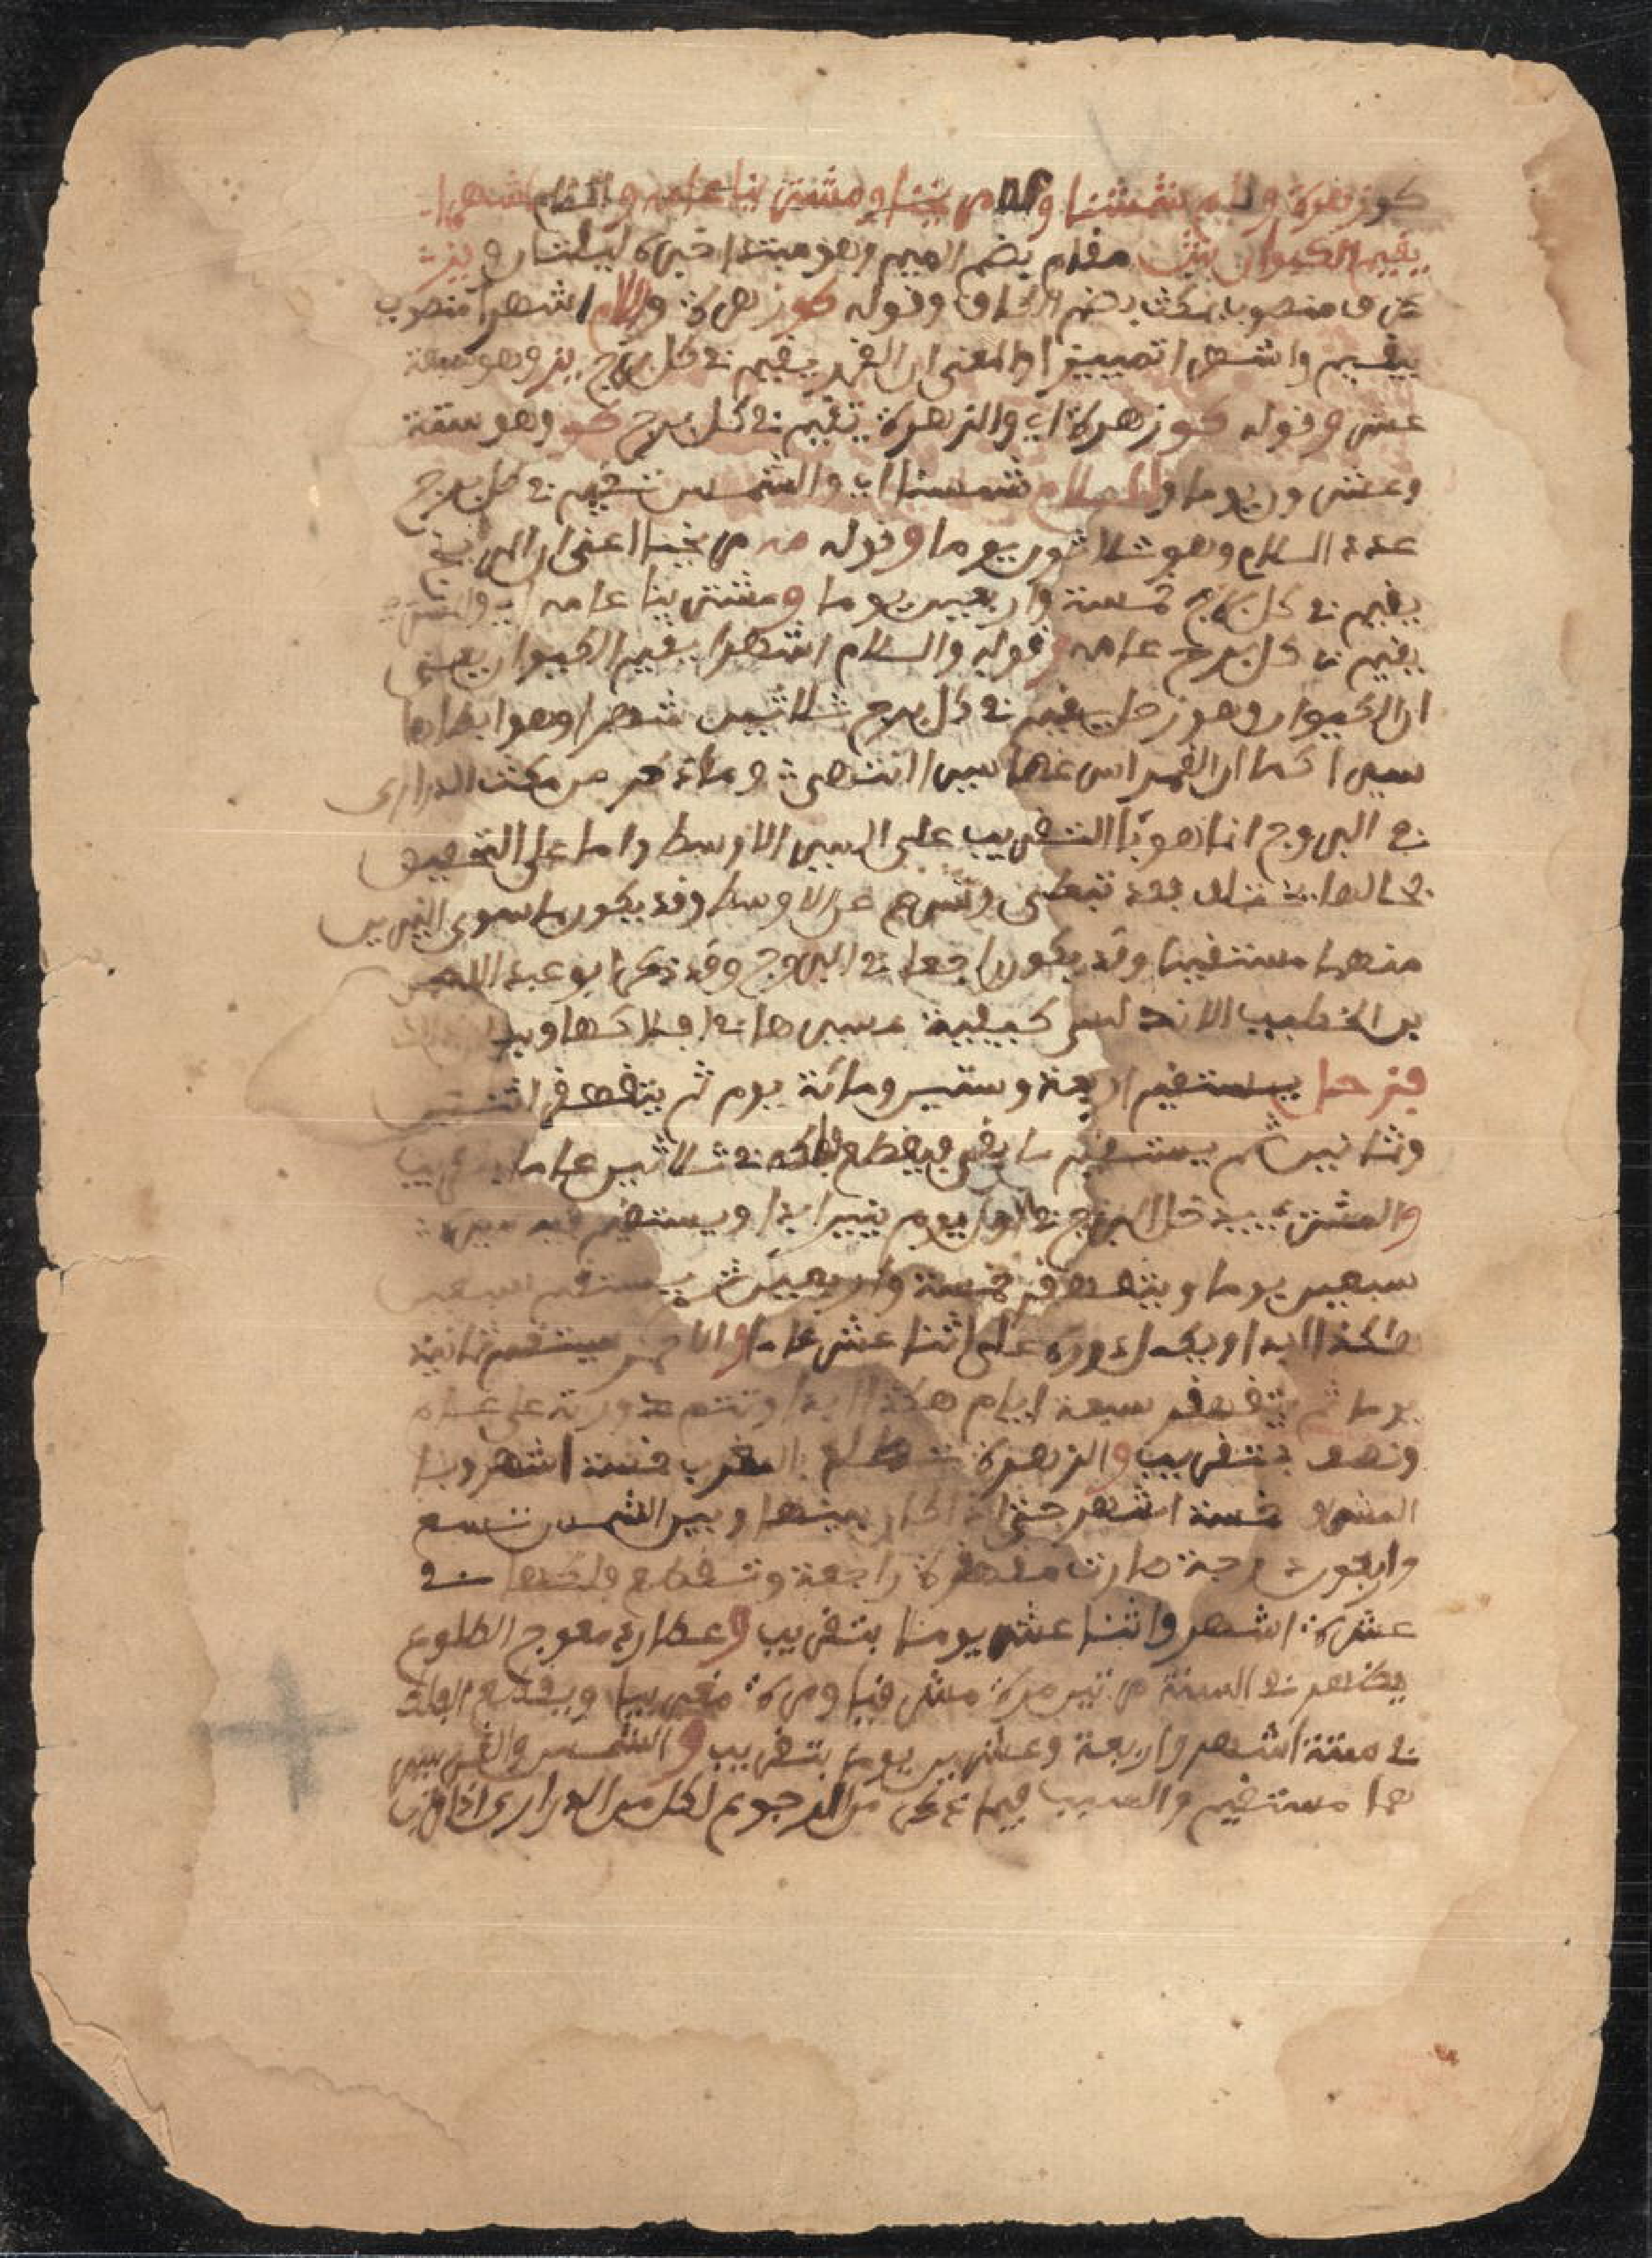 كوزهرة وليم شمسنا و مريخنا ومشتر بنا عامه والسلام اشهرا
يقيم الكيوان مقام بضم الميم وهو مبتدا خبره ليلتان و
منصوب بمكث بضم الكاف وقوله كوزهرة والسلام اشهرا منصوب
بيقيم واشهرا تمييز اذ المعنى ان القمر يقيم في كل برج وهو
عشر وقوله كوزهرة اي والزهرة تقيم في كل برج كو وهو ستة
وعشرون يوما والسلام شمسنا اي والشمس تقيم في كل برج
عدة السلام وهو ثلاثون يوما وقوله مه مريخنا اعني ان المريخ
يقيم في كل برج خمسة واربعين يوما ومشتر بنا عامه اي والمشتري
يقيم في كل برج عامه وقوله والسلام اشهرا يقيم الكيوان يعني
ان الكيوان وهو زحل يقيم في كل برج ثلاثين شهرا وهو ابطاها
سيرا كما ان القمر اسرعها سيرا انتهى وما ذكر من مكث الدراري
في البروج انما هو بالتقريب على السير الاوسط واما على التحقيق
فحالها يختلف فقد تبطى وتسرع عن الاوسط وقد يكون ما سوى النيرين
منهما مستقيما وقد يكون راجعا في البروج وقد ذكر ابو عبد الله
بن الخطيب الاندلسي كيفية مسيرها في افلاكها
فزحل يستقيم اربعة وستين ومائة يوم ثم يتقهقر
ثم يستقيم ما بقي فيقطع فلكه في ثلاثين عاما
والمشتري يدخل البرج في اول يوم ينير ابدا ويستقيم فيه
سبعين يوما ويتقهقر خمسة واربعين ثم يستقيم سبعين
هكذا ابدا ويكمل دوره على اثنا عشر عاما والاحمر يستقيم ثمانية
يوما ثم يتقهقر سبعة ايام هكذا ابدا وتتم دورته على عام
ونصف بتقريب والزهرة تطلع بالمغرب خمسة اشهر
المشرق خمسة اشهر حتى اذا كان بينها وبين الشمس تسع
واربعون درجة صارت مقهقرة راجعة وتقطع فلكها في
عشرة اشهر واثنا عشر يوما بتقريب وعطارد معوج الطلوع
يظهر في السنة مرتين مرة مشرقيا ومرة مغربيا ويقطع الفلك
في ستة اشهر واربعة وعشرين يوما بتقريب والشمس والقمر سير
هما مستقيم والسبب فيما ذكر من الرجوع لكل من الدراري